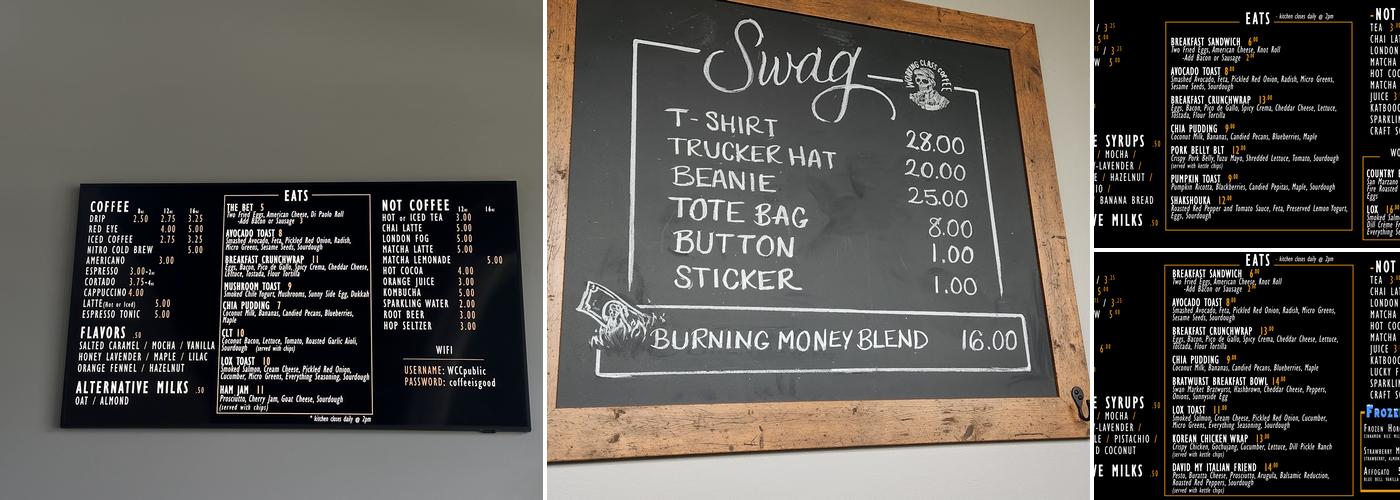 COFFEE 8oz 12oz 16oz
DRIP 2.50 2.75 3.25
RED EYE 4.00 5.00
ICED COFFEE 2.75 3.25
NITRO COLD BREW 5.00
AMERICANO 3.00
ESPRESSO 3.00-2oz
CORTADO 3.75-4oz
CAPPUCCINO 4.00
LATTE(Hot or Iced) 5.00
ESPRESSO TONIC 5.00
FLAVORS .50
SALTED CARAMEL / MOCHA / VANILLA
HONEY LAVENDER / MAPLE / LILAC
ORANGE FENNEL / HAZELNUT
ALTERNATIVE MILKS .50
OAT / ALMOND
EATS
THE BET 5
Two Fried Eggs, American Cheese, Di Paolo Roll
-Add Bacon or Sausage 3
AVOCADO TOAST 8
Smashed Avocado, Feta, Pickled Red Onion, Radish,
Micro Greens, Sesame Seeds, Sourdough
BREAKFAST CRUNCHWRAP 11
Eggs, Bacon, Pico de Gallo, Spicy Crema, Cheddar Cheese,
Lettuce, Tostada, Flour Tortilla
MUSHROOM TOAST 9
Smoked Chile Yogurt, Mushrooms, Sunny Side Egg, Dukkah
CHIA PUDDING 7
Coconut Milk, Bananas, Candied Pecans, Blueberries,
Maple
CLT 10
Coconut Bacon, Lettuce, Tomato, Roasted Garlic Aioli,
Sourdough (served with chips)
LOX TOAST 10
Smoked Salmon, Cream Cheese, Pickled Red Onion,
Cucumber, Micro Greens, Everything Seasoning, Sourdough
HAM JAM 11
Prosciutto, Cherry Jam, Goat Cheese, Sourdough
(served with chips)
* kitchen closes daily @ 2pm
NOT COFFEE 12oz 16oz
HOT or ICED TEA 3.00
CHAI LATTE 5.00
LONDON FOG 5.00
MATCHA LATTE 5.00
MATCHA LEMONADE 5.00
HOT COCOA 4.00
ORANGE JUICE 3.00
KOMBUCHA 5.00
SPARKLING WATER 2.00
ROOT BEER 3.00
HOP SELTZER 3.00
WIFI
USERNAME: WCCpublic
PASSWORD: coffeeisgood
Swag
WORKING CLASS COFFEE
T-SHIRT 28.00
TRUCKER HAT 20.00
BEANIE 25.00
TOTE BAG 8.00
BUTTON 1.00
STICKER 1.00
BURNING MONEY BLEND 16.00
EATS - kitchen closes daily @ 2pm
BREAKFAST SANDWICH 6.00
Two Fried Eggs, American Cheese, Knot Roll
-Add Bacon or Sausage 2.00
AVOCADO TOAST 8.00
Smashed Avocado, Feta, Pickled Red Onion, Radish, Micro Greens,
Sesame Seeds, Sourdough
BREAKFAST CRUNCHWRAP 13.00
Eggs, Bacon, Pico de Gallo, Spicy Crema, Cheddar Cheese, Lettuce,
Tostada, Flour Tortilla
CHIA PUDDING 9.00
Coconut Milk, Bananas, Candied Pecans, Blueberries, Maple
PORK BELLY BLT 12.00
Crispy Pork Belly, Yuzu Mayo, Shredded Lettuce, Tomato, Sourdough
(served with kettle chips)
PUMPKIN TOAST 9.00
Pumpkin Ricotta, Blackberries, Candied Pepitas, Maple, Sourdough
SHAKSHOUKA 12.00
Roasted Red Pepper and Tomato Sauce, Feta, Preserved Lemon Yogurt,
Eggs, Sourdough
/ 3.25
5.00
/ 3.25
W 5.00
E SYRUPS .50
/ MOCHA /
-LAVENDER /
E / HAZELNUT /
IO /
BANANA BREAD
VE MILKS .50
-NOT
TEA
CHAI LA
LONDON
MATCHA
HOT COC
MATCHA
JUICE
KATBOO
SPARKL
CRAFT S
COUNTRY
San Marzano
Fire Roasted
Eggs
LOX
Smoked Salm
Dill Crème Fr
Everything Se
EATS - kitchen closes daily @ 2pm
BREAKFAST SANDWICH 6.00
Two Fried Eggs, American Cheese, Knot Roll
-Add Bacon or Sausage
AVOCADO TOAST 8.00
Smashed Avocado, Feta, Pickled Red Onion, Radish, Micro Greens,
Sesame Seeds, Sourdough
BREAKFAST CRUNCHWRAP 13.00
Eggs, Bacon, Pico de Gallo, Spicy Crema, Cheddar Cheese, Lettuce,
Tostada, Flour Tortilla
CHIA PUDDING 9.00
Coconut Milk, Bananas, Candied Pecans, Blueberries, Maple
BRATWURST BREAKFAST BOWL 14.00
Swan Market Bratwurst, Hashbrown, Cheddar Cheese, Peppers,
Onions, Sunnyside Egg
LOX TOAST 11.00
Smoked Salmon, Cream Cheese, Pickled Red Onion, Cucumber,
Micro Greens, Everything Seasoning, Sourdough
KOREAN CHICKEN WRAP 13.00
Crispy Chicken, Gochujang, Cucumber, Lettuce, Dill Pickle Ranch
(served with kettle chips)
DAVID MY ITALIAN FRIEND 14.00
Pesto, Buratta Cheese, Prosciutto, Arugula, Balsamic Reduction,
Roasted Red Peppers, Sourdough
(served with kettle chips)
6.00
E SYRUPS .50
/ MOCHA /
-LAVENDER /
LE / PISTACHIO /
D COCONUT
VE MILKS .50
-NOT
TEA
CHAI LA
LONDON
MATCHA
HOT COC
MATCHA
JUICE
KATBOO
LUCKY
SPARKL
CRAFT
FROZE
FROZEN HOR
STRAWBERRY M
AFFOGATO